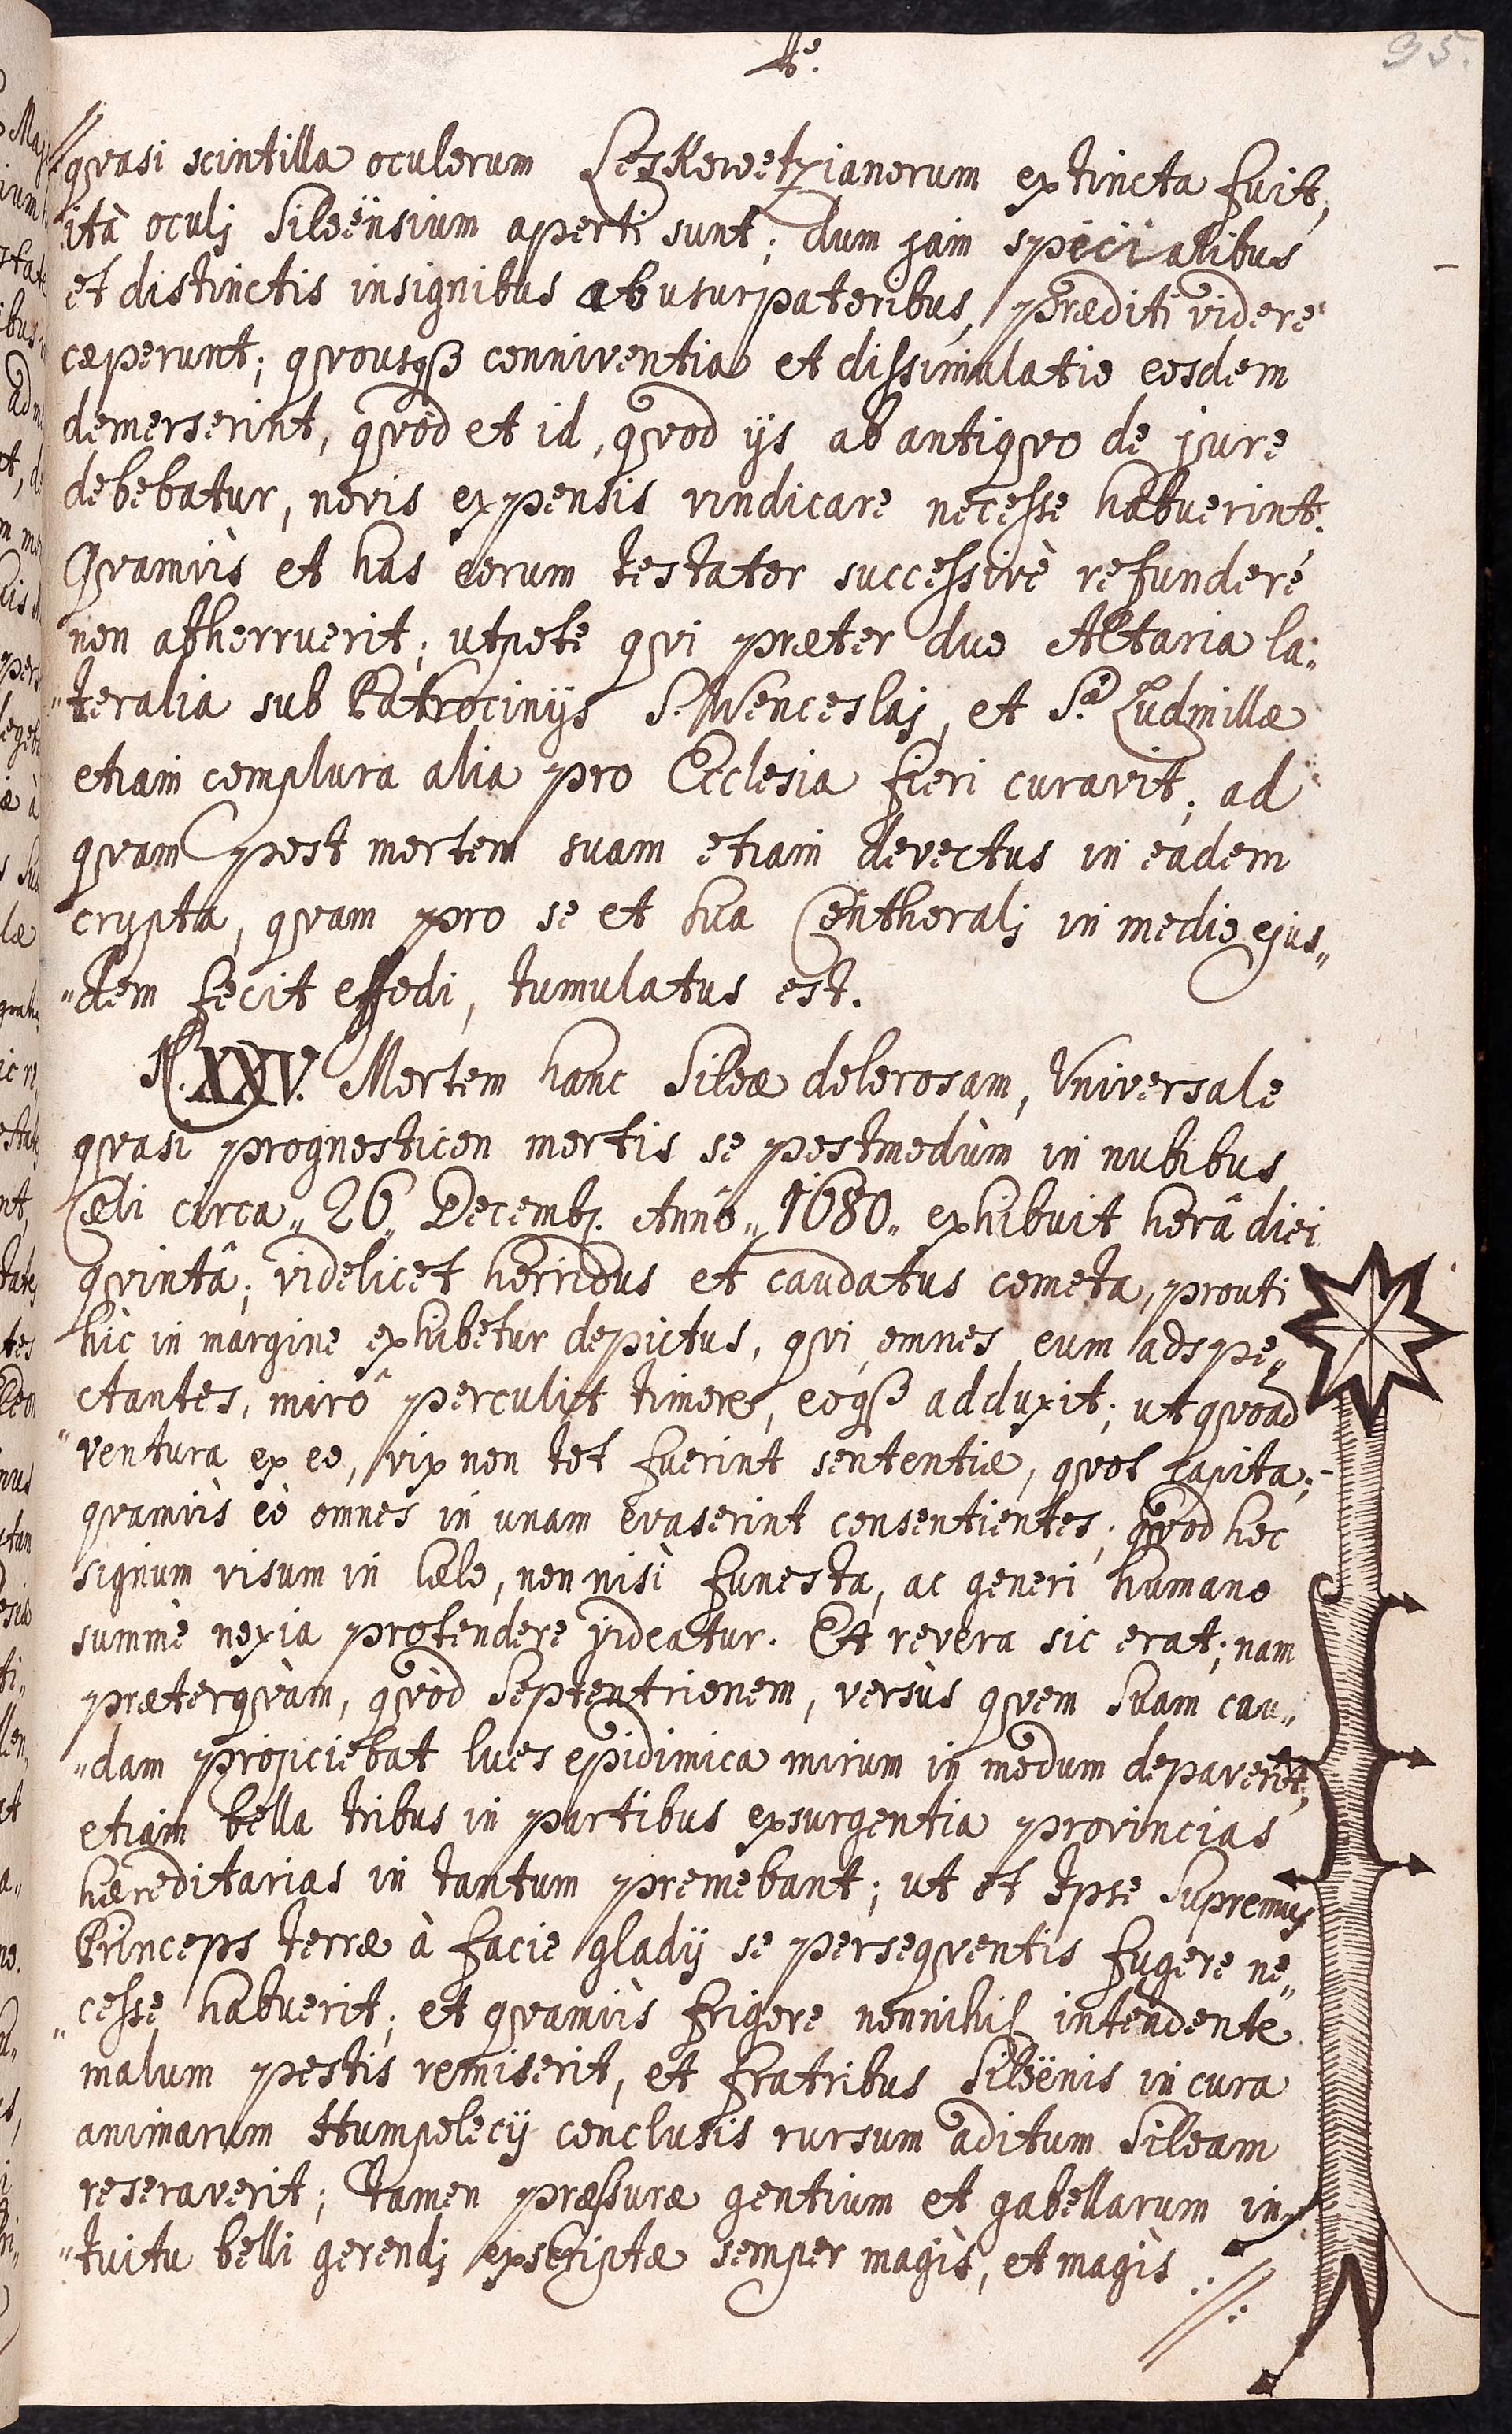 95.
quasi scintilla oculorum Leskowetzianorum extincta fuit,
ità oculj Siloënsium aperti sunt; dum jam specialibus
et distinctis insignibus ab usurpatoribus, præditi videre
cæperunt; qvousq₃ conniventia et dissimulatio eosdem
demerserint, qvòd et id, qvod ijs ab antiqvo de jure
debebatur, novis expensis vindicare necesse habuerint.
Qvamvis et has eorum testator successivè refundere
non abhorruerit; utpote qvi præter duo Altaria la:
"teralia sub Patrocinijs S. Wenceslaj, et S.ᵃ Ludmillæ
etiam complura alia pro Ecclesia fieri curavit; ad
qvam post mortem suam etiam devectus in eadem
crypta, qvam pro se et sua Conthoralj in medio ejus„
„dem fecit effodi, tumulatus est.
N. XXV. Mortem hanc Siloæ dolorosam, Universale
qvasi prognosticon mortis se postmodùm in nubibus
Cæli circa „ 26 „ Decemb. Annô „ 1680 „ exhibuit horâ diei
qvintâ; videlicet horridus et caudatus cometa, prouti
hìc in margine exhibetur depictus, qvi omnes eum adspe„
ctantes, mirô perculit timore, eoq₃ adduxit; ut qvoad
"ventura ex eo, vix non tot fuerint sententiæ, qvot capita;
qvamvis eò omnes in unam evaserint consentientes; qvod hoc
signum visum in Cælo, non nisi funesta, ac generi humano
summè noxia protendere videatur. Et revera sic erat; nam
præterqvàm, qvòd Septentrionem, versùs qvem suam cau„
„dam projiciebat lues epidimica mirum in modum depaverit,
etiam bella tribus in partibus exsurgentia provincias
hæreditarias in tantum premebant; ut et Ipse Supremus
Princeps terræ à facie gladij se perseqventis fugere ne„
„cesse habuerit; et qvamvis frigore nonnihil intendente
malum pestis remiserit, et fratribus Siloënis in cura
animarum Humpolecij conclusis rursum aditum Siloam
reseraverit; tamen præssuræ gentium et gabellarum in„
„tuitu belli gerendj exscriptæ semper magìs, et magìs